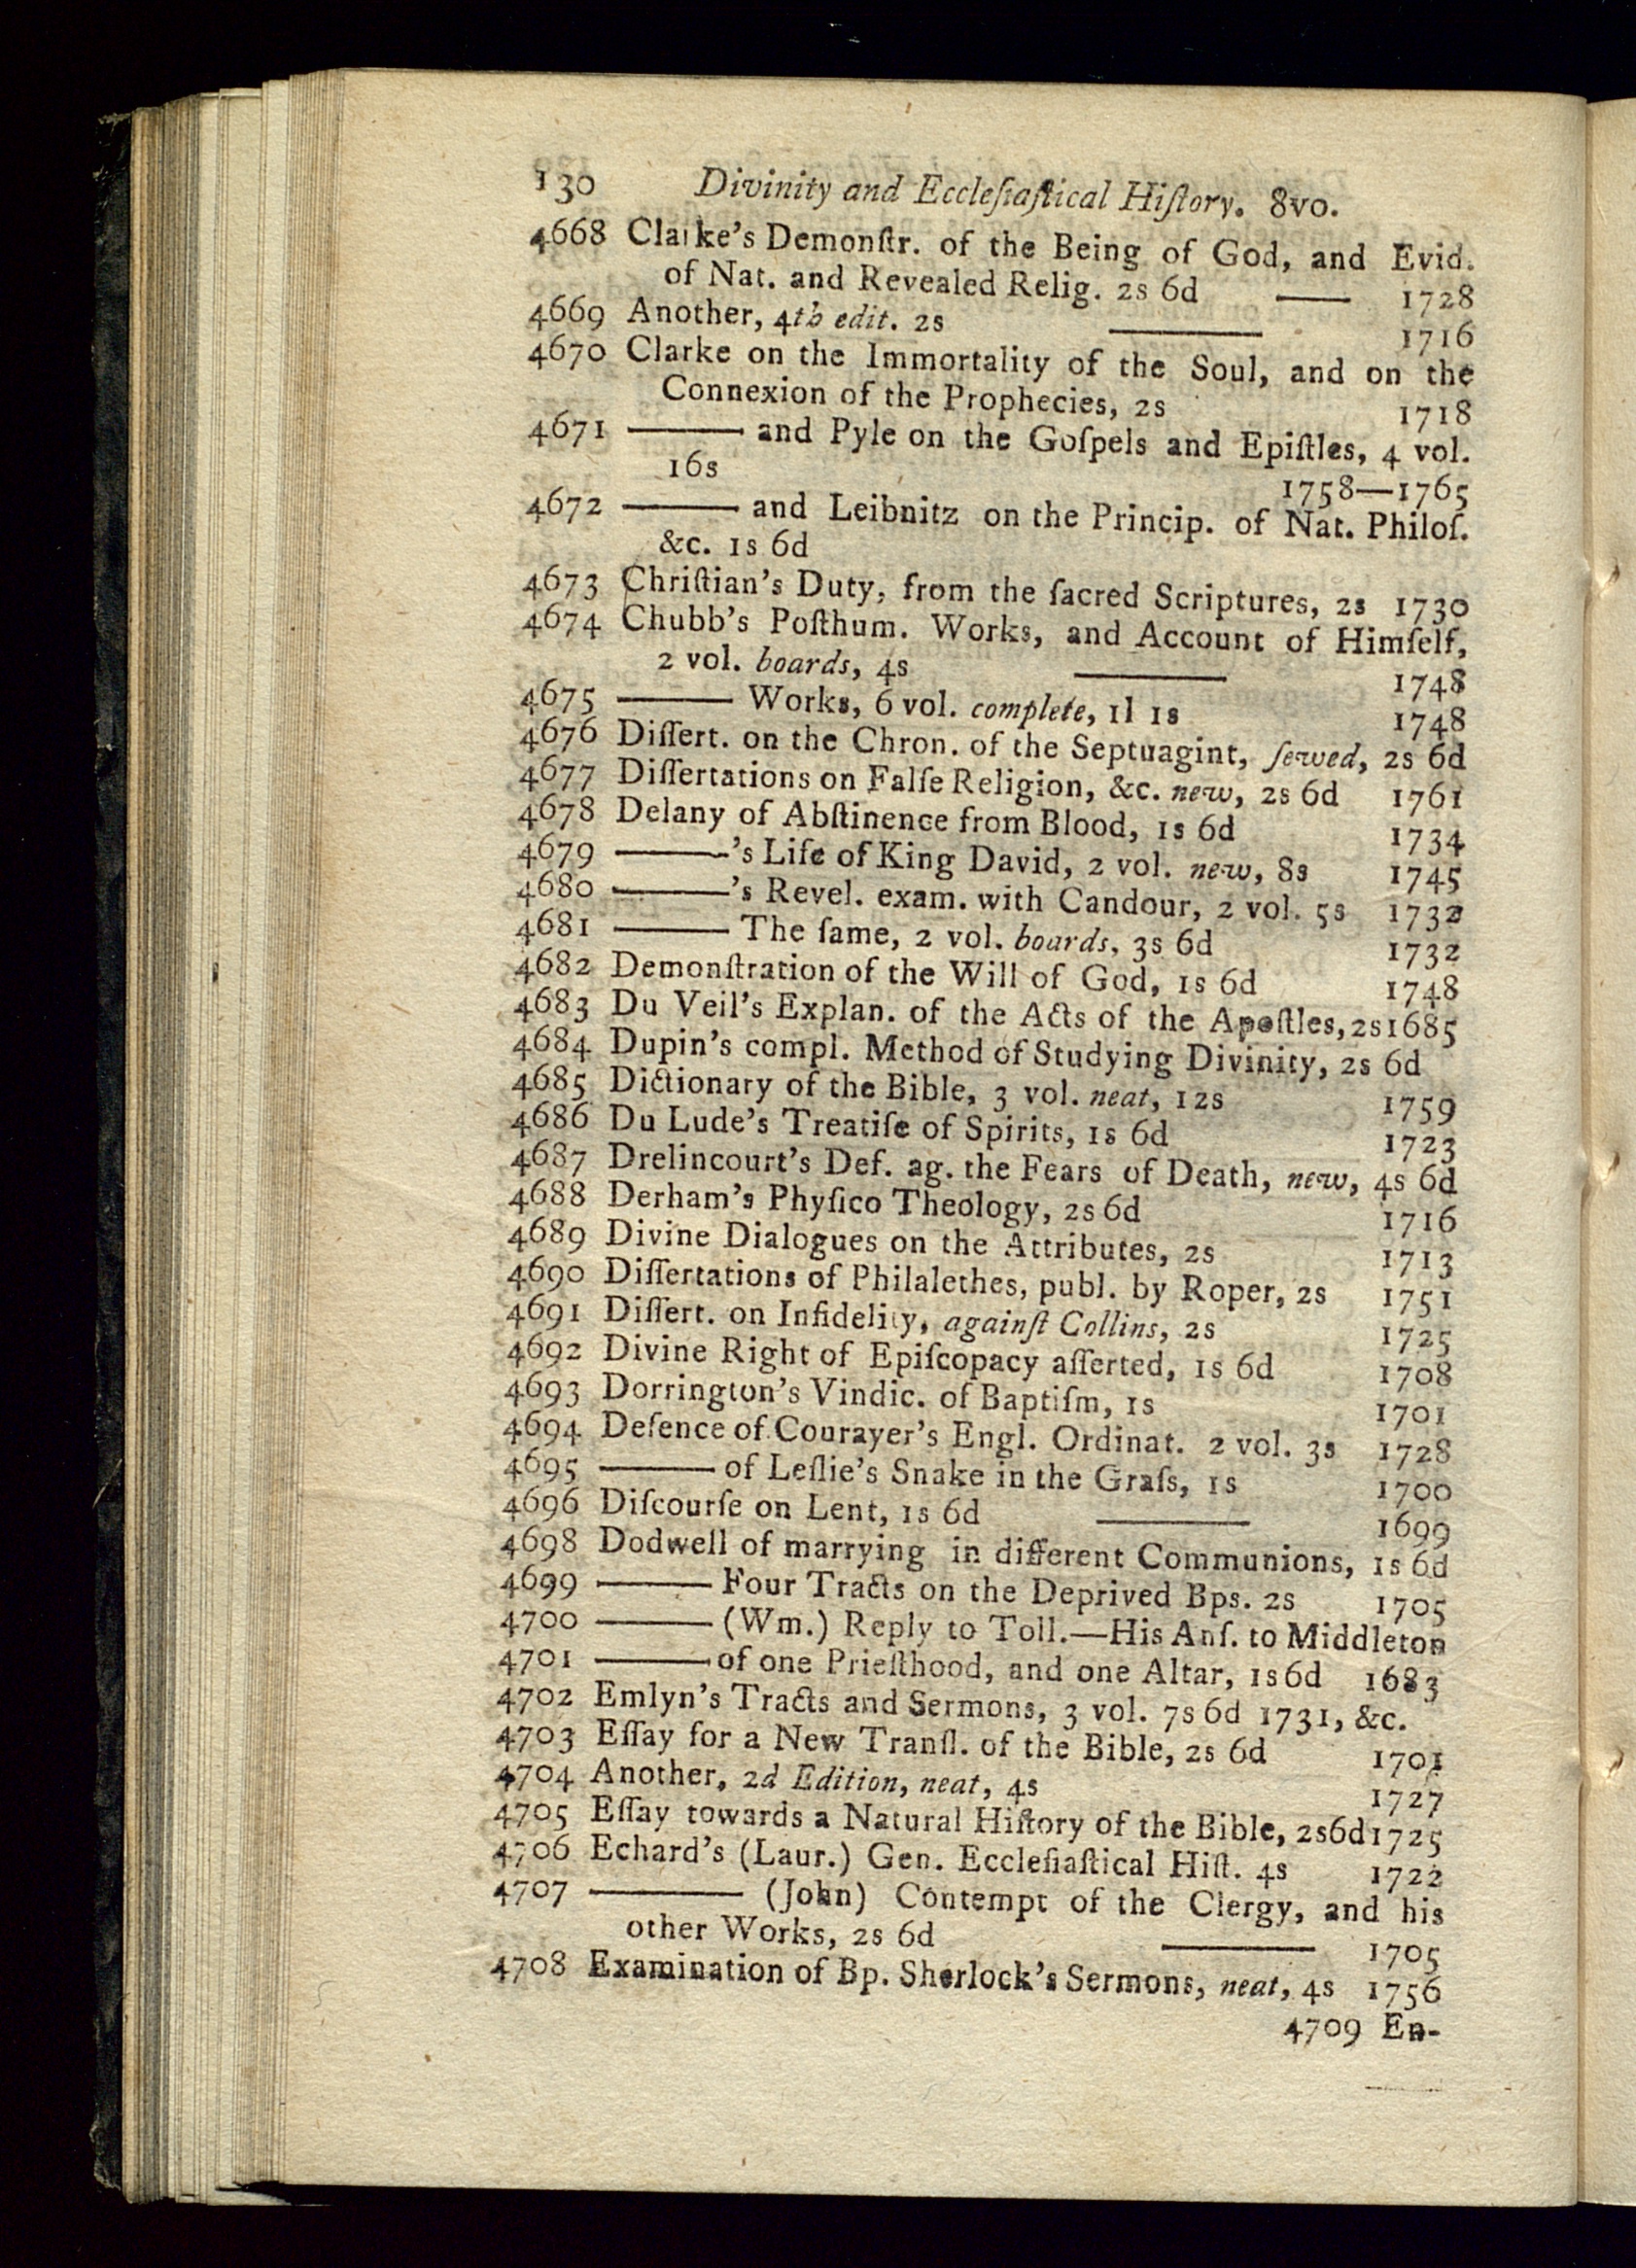 130 Divinity and Eccleſiaſtical Hiſtory. 8vo.
4668 Clarke's Demonſtr. of the Being of God, and Evid.
of Nat. and Revealed Relig. 2s 6d —— 1728
4669 Another, 4th edit. 2s —— 1716
4670 Clarke on the Immortality of the Soul, and on the
Connexion of the Prophecies, 2s 1718
4671 —— and Pyle on the Goſpels and Epiſtles, 4 vol.
16s 1758—1765
4672 —— and Leibnitz on the Princip. of Nat. Philoſ.
&c. 1s 6d
4673 Chriſtian's Duty, from the ſacred Scriptures, 2s 1730
4674 Chubb's Poſthum. Works, and Account of Himſelf,
2 vol. boards, 4s —— 1748
4675 —— Works, 6 vol. complete, 1l 1s 1748
4676 Diſſert. on the Chron. of the Septuagint, ſewed, 2s 6d
4677 Diſſertations on Falſe Religion, &c. new, 2s 6d 1761
4678 Delany of Abſtinence from Blood, 1s 6d 1734
4679 ——'s Life of King David, 2 vol. new, 8s 1745
4680 ——'s Revel. exam. with Candour, 2 vol. 5s 1732
4681 —— The ſame, 2 vol. boards, 3s 6d 1732
4682 Demonſtration of the Will of God, 1s 6d 1748
4683 Du Veil's Explan. of the Acts of the Apoſtles, 2s 1685
4684 Dupin's compl. Method of Studying Divinity, 2s 6d
4685 Dictionary of the Bible, 3 vol. neat, 12s 1759
4686 Du Lude's Treatiſe of Spirits, 1s 6d 1723
4687 Drelincourt's Def. ag. the Fears of Death, new, 4s 6d
4688 Derham's Phyſico Theology, 2s 6d 1716
4689 Divine Dialogues on the Attributes, 2s 1713
4690 Diſſertations of Philalethes, publ. by Roper, 2s 1751
4691 Diſſert. on Infidelity, againſt Collins, 2s 1725
4692 Divine Right of Epiſcopacy aſſerted, 1s 6d 1708
4693 Dorrington's Vindic. of Baptiſm, 1s 1701
4694 Defence of Courayer's Engl. Ordinat. 2 vol. 3s 1728
4695 —— of Leſlie's Snake in the Graſs, 1s 1700
4696 Diſcourſe on Lent, 1s 6d —— 1699
4698 Dodwell of marrying in different Communions, 1s 6d
4699 —— Four Tracts on the Deprived Bps. 2s 1705
4700 —— (Wm.) Reply to Toll.—His Anſ. to Middleton
4701 —— of one Prieſthood, and one Altar, 1s 6d 1683
4702 Emlyn's Tracts and Sermons, 3 vol. 7s 6d 1731, &c.
4703 Eſſay for a New Tranſl. of the Bible, 2s 6d 1701
4704 Another, 2d Edition, neat, 4s 1727
4705 Eſſay towards a Natural Hiſtory of the Bible, 2s6d 1725
4706 Echard's (Laur.) Gen. Eccleſiaſtical Hiſt. 4s 1722
4707 —— (John) Contempt of the Clergy, and his
other Works, 2s 6d —— 1705
4708 Examination of Bp. Sherlock's Sermons, neat, 4s 1756
4709 En-